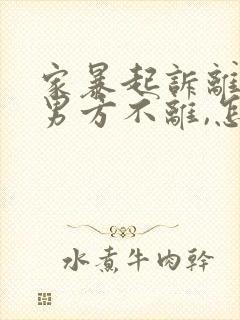 家暴起訴離
男方不離,怎
水煮牛肉幹